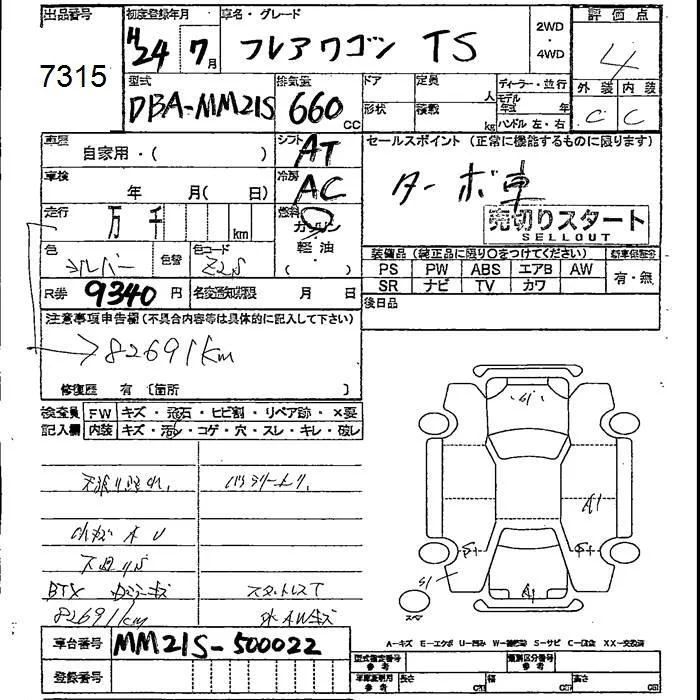 出品番号 初度登録年月 車名・グレード 2WD・4WD 評価点
7315 H24 7月 フレアワゴン TS 4
型式 排気量 ドア 定員 人 ディーラー・並行 外装 内装
DBA-MM21S 660cc 形状 積載 kg モデル年式 年 ハンドル 左・右 C C
車歴 自家用・( ) シフト AT セールスポイント (正常に機能するものに限ります)
車検 年 月( 日) 冷房 AC ターボ車
走行 万 千 km 燃料 ガソリン 売切りスタート
SELLOUT
色 シルバー 色替 色コード Z2S 軽油 ( ・ )
装備品 (純正品に限り○をつけてください) 新車保証書
PS PW ABS エアB AW 有・無
SR ナビ TV カワ
R券 9340円 名変通知期限 月 日 後日品
注意事項申告欄 (不具合内容等は具体的に記入して下さい)
→82691km
修復歴 有 〔箇所 〕
検査員 FW キズ・飛石・ヒビ割・リペア跡・×要
記入欄 内装 キズ・汚レ・コゲ・穴・スレ・キレ・破レ
A1
S1
A1
スペア
BTX
スタットレスT
82691km
A-キズ E-エクボ U-凹み W-補修跡 S-サビ C-腐食 XX-交換済
車台番号 MM21S-500022
型式指定番号 参考 類別区分番号 参考
登録番号
車庫証明用 参考 長さ CM 幅 CM 高さ CM